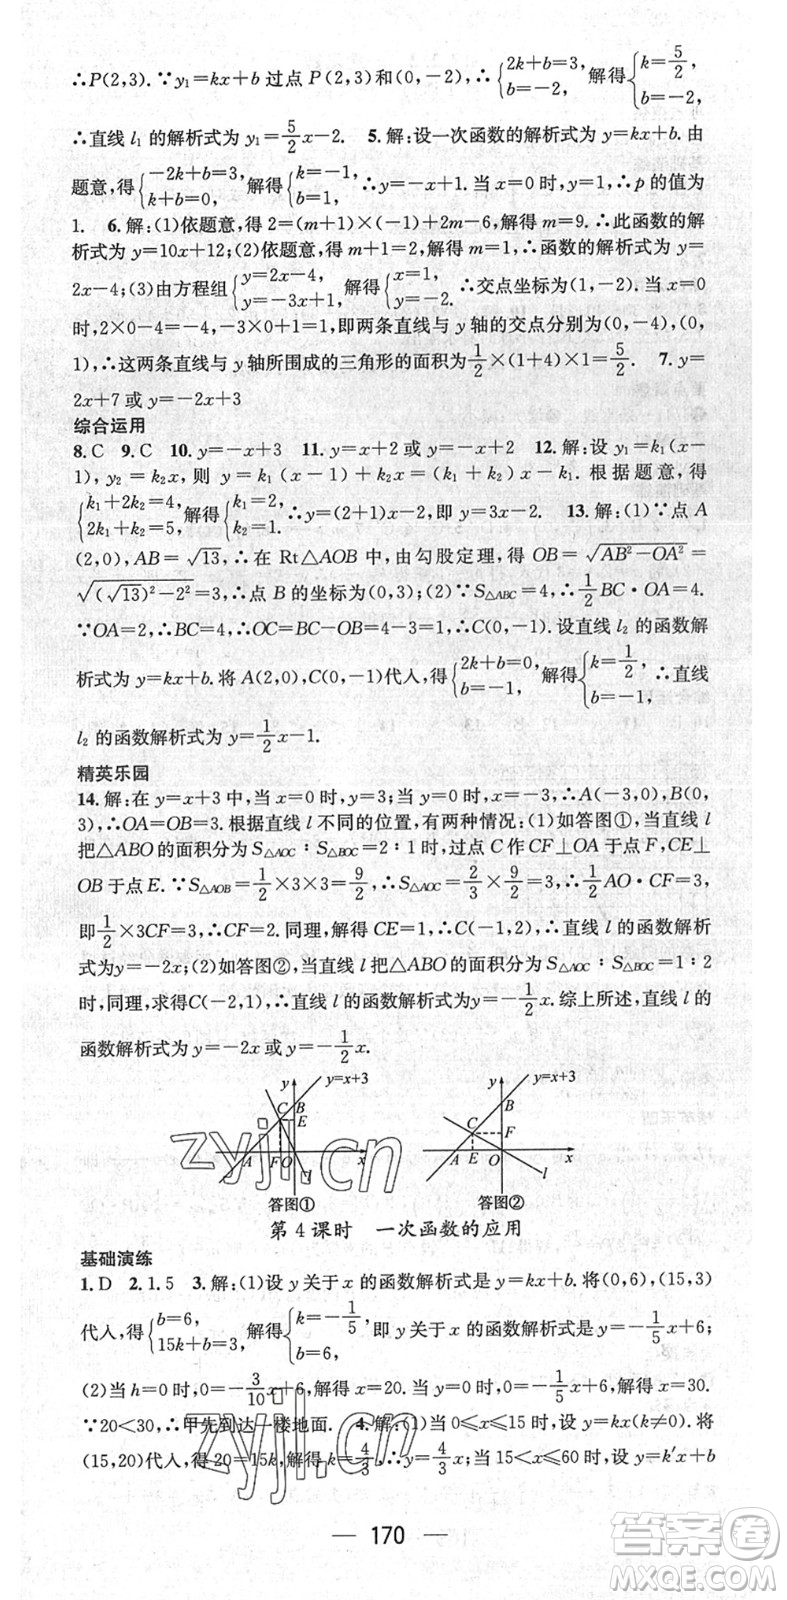 ∴P(2,3).∵y₁=kx+b 过点 P(2,3)和(0,-2),∴{2k+b=3, b=-2, 解得{k=5/2, b=-2,
∴直线 l₁ 的解析式为 y₁=5/2x-2. 5.解:设一次函数的解析式为 y=kx+b.由
题意,得{-2k+b=3, k+b=0, 解得{k=-1, b=1, ∴y=-x+1.当 x=0 时,y=1,∴p 的值为
1. 6.解:(1)依题意,得 2=(m+1)×(-1)+2m-6,解得 m=9.∴此函数的解
析式为 y=10x+12;(2)依题意,得 m+1=2,解得 m=1,∴函数的解析式为 y=
2x-4;(3)由方程组{y=2x-4, y=-3x+1, 解得{x=1, y=-2. ∴交点坐标为(1,-2).当 x=0
时,2×0-4=-4,-3×0+1=1,即两条直线与 y 轴的交点分别为(0,-4),(0,
1),∴这两条直线与 y 轴所围成的三角形的面积为1/2×(1+4)×1=5/2. 7.y=
2x+7 或 y=-2x+3
综合运用
8.C 9.C 10.y=-x+3 11.y=x+2 或 y=-x+2 12.解:设 y₁=k₁(x-
1),y₂=k₂x,则 y=k₁(x-1)+k₂x=(k₁+k₂)x-k₁.根据题意,得
{k₁+2k₂=4, 2k₁+k₂=5, 解得{k₁=2, k₂=1. ∴y=(2+1)x-2,即 y=3x-2. 13.解:(1)∵点 A
(2,0),AB=√13,∴在 Rt△AOB 中,由勾股定理,得 OB=√(AB²-OA²)=
√((√13)²-2²)=3,∴点 B 的坐标为(0,3);(2)∵S△ABC=4,∴1/2BC·OA=4.
∵OA=2,∴BC=4,∴OC=BC-OB=4-3=1,∴C(0,-1).设直线 l₂ 的函数解
析式为 y=kx+b.将 A(2,0),C(0,-1)代入,得{2k+b=0, b=-1, 解得{k=1/2, b=-1, ∴直线
l₂ 的函数解析式为 y=1/2x-1.
精英乐园
14.解:在 y=x+3 中,当 x=0 时,y=3;当 y=0 时,x=-3,∴A(-3,0),B(0,
3),∴OA=OB=3.根据直线 l 不同的位置,有两种情况:(1)如答图①,当直线 l
把△ABO 的面积分为 S△AOC∶S△BOC=2∶1 时,过点 C 作 CF⊥OA 于点 F,CE⊥
OB 于点 E.∵S△AOB=1/2×3×3=9/2,∴S△AOC=2/3×9/2=3,∴1/2AO·CF=3,
即1/2×3CF=3,∴CF=2.同理,解得 CE=1,∴C(-1,2),∴直线 l 的函数解析
式为y=-2x;(2)如答图②,当直线 l 把△ABO 的面积分为 S△AOC∶S△BOC=1∶2
时,同理,求得C(-2,1),∴直线 l 的函数解析式为y=-1/2x.综上所述,直线 l 的
函数解析式为 y=-2x 或y=-1/2x.
y y=x+3 C B E A F O x l
答图①
y y=x+3 B C F A E O x l
答图②
第 4 课时 一次函数的应用
基础演练
1.D 2.1.5 3.解:(1)设 y 关于 x 的函数解析式是 y=kx+b.将(0,6),(15,3)
代入,得{b=6, 15k+b=3, 解得{k=-1/5, b=6, 即 y 关于 x 的函数解析式是 y=-1/5x+6;
(2)当 h=0 时,0=-3/10x+6,解得 x=20.当 y=0 时,0=-1/5x+6,解得 x=30.
∵20<30,∴甲先到达一楼地面. 4.解:(1)当 0≤x≤15 时,设 y=kx(k≠0).将
(15,20)代入,得 20=15k,解得 k=4/3,∴y=4/3x;当 15<x≤60 时,设 y=k′x+b
— 170 —
zyjl.cn
zyjl.cn
答案圈
MXQE.COM